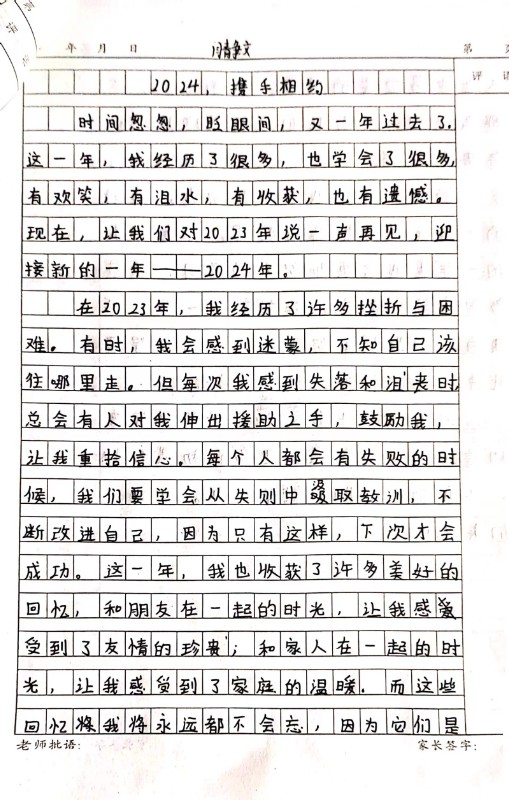 年 月 日
第
评
2024，携手相约
时间忽忽，眨眼间，又一年过去了.
这一年，我经历了很多，也学会了很多,
有欢笑，有泪水，有收获，也有遗憾。
现在，让我们对2023年说一声再见，迎
接新的一年——2024年。
在2023年，我经历了许多挫折与困
难。有时，我会感到迷蒙，不知自己该
往哪里走。但每次我感到失落和沮丧时
总会有人对我伸出援助之手，鼓励我，
让我重拾信心。每个人都会有失败的时
候，我们要学会从失则中取教训，不
断改进自己，因为只有这样，下次才会
成功。这一年，我也收获了许多美好的
回忆，和朋友在一起的时光，让我感
受到了友情的珍贵；和家人在一起的时
光，让我感受到了家庭的温暖.而这些
回忆将我将永远都不会忘，因为它们是
老师批语:
家长签字: